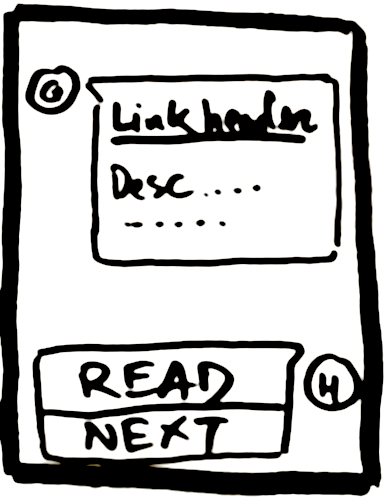 G
Link header
Desc ....
-....
READ
H
NEXT